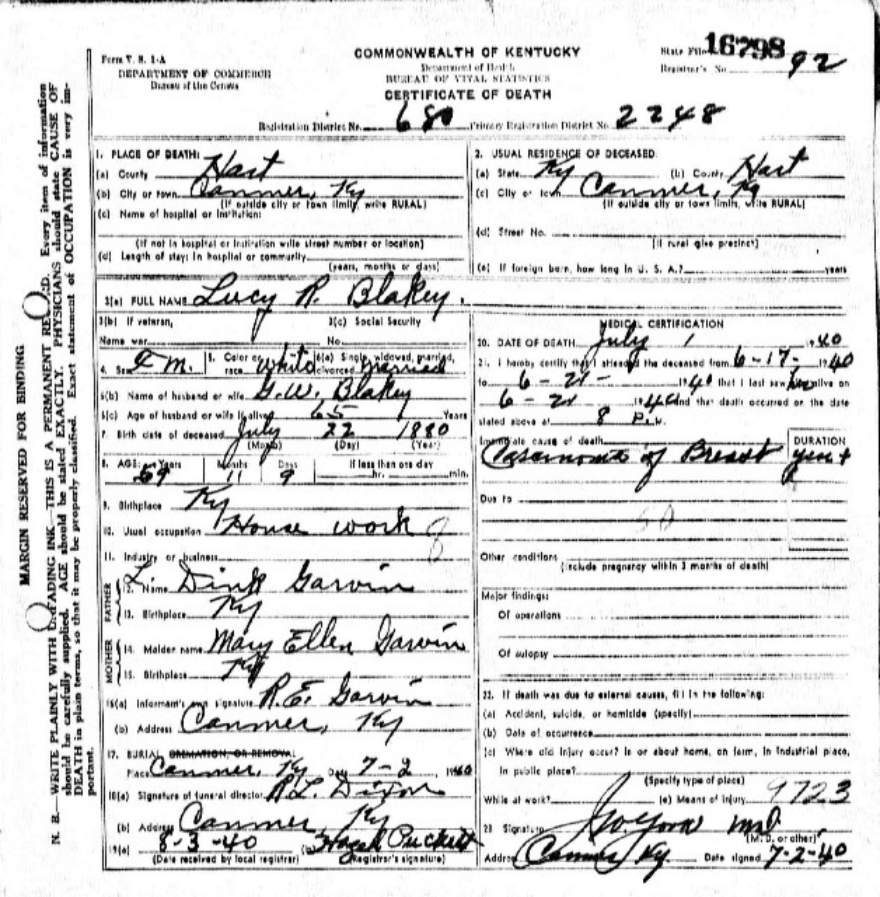 Form V. S. 1-A
DEPARTMENT OF COMMERCE
Bureau of the Census
COMMONWEALTH OF KENTUCKY
Department of Health
BUREAU OF VITAL STATISTICS
CERTIFICATE OF DEATH
State File 16798
Registrar's No. 92
Registration District No. 680 Primary Registration District No. 2248
MARGIN RESERVED FOR BINDING
N. B.—WRITE PLAINLY WITH UNFADING INK—THIS IS A PERMANENT RECORD. Every item of information
should be carefully supplied. AGE should be stated EXACTLY. PHYSICIANS should state CAUSE OF
DEATH in plain terms, so that it may be properly classified. Exact statement of OCCUPATION is very im-
portant.
1. PLACE OF DEATH:
(a) County Hart
(b) City or town Canmer, Ky
(If outside city or town limits, write RURAL)
(c) Name of hospital or institution:
(If not in hospital or institution write street number or location)
(d) Length of stay: In hospital or community
(years, months or days)
2. USUAL RESIDENCE OF DECEASED:
(a) State Ky (b) County Hart
(c) City or town Canmer, Ky
(If outside city or town limits, write RURAL)
(d) Street No.
(If rural give precinct)
(e) If foreign born, how long in U. S. A.? years
3(a) FULL NAME Lucy R. Blakey.
3(b) If veteran,
Name war
3(c) Social Security
No.
4. Sex Fm. 5. Color or race White 6(a) Single, widowed, married, divorced Married
6(b) Name of husband or wife G. W. Blakey
6(c) Age of husband or wife if alive 65 Years
7. Birth date of deceased July 22 1880
(Month) (Day) (Year)
8. AGE: Years Months Days If less than one day
59 11 9 hr. min.
9. Birthplace Ky
10. Usual occupation House work
8
11. Industry or business
FATHER
12. Name Dink Garvin
13. Birthplace Ky
MOTHER
14. Maiden name Mary Ellen Garvin
15. Birthplace Ky
16(a) Informant's own signature R. E. Garvin
(b) Address Canmer, Ky
17. BURIAL CREMATION, OR REMOVAL
Place Canmer, Ky Day 7-2 1940
18(a) Signature of funeral director R. L. Dixon
(b) Address Canmer, Ky
19(a) 8-3-40 (b) Puckett
(Date received by local registrar) (Registrar's signature)
MEDICAL CERTIFICATION
20. DATE OF DEATH July 1 1940
21. I hereby certify that I attended the deceased from 6-17- 1940
to 6-21- 1940 that I last saw alive on
6-21 1940 and that death occurred on the date
stated above at 8 P. M.
Immediate cause of death DURATION
of Breast
Due to
50
Other conditions
(Include pregnancy within 3 months of death)
Major findings:
Of operations
Of autopsy
22. If death was due to external causes, fill in the following:
(a) Accident, suicide, or homicide (specify)
(b) Date of occurrence
(c) Where did injury occur? In or about home, on farm, in industrial place,
in public place?
(Specify type of place)
While at work? (e) Means of injury 9723
23 Signature MD.
(M. D. or other)
Address Canmer Ky Date signed 7-2-40